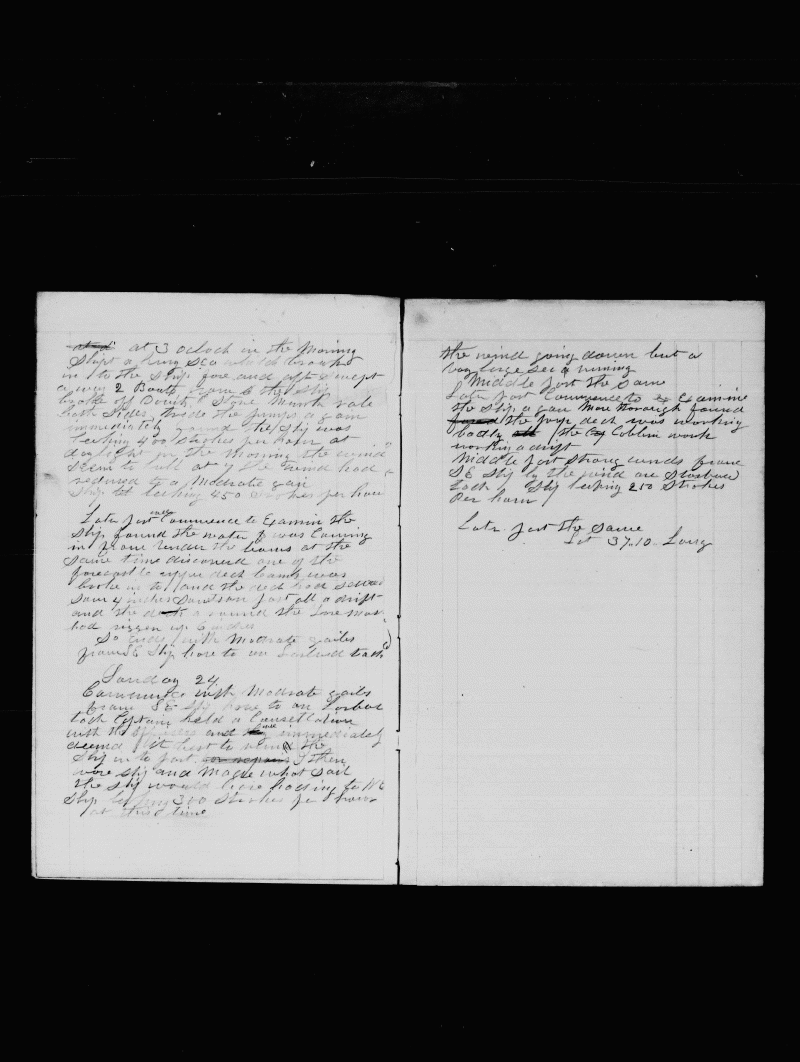 at 3 oclock in the Morning
Shipt a heavy Sea which
in to the Ship fore and aft swept
away 2 Boats the Ship
broke off Davits Stove Main rale
both Sides, tride the pumps a gain
immediately found the Ship was
leeking 400 Strokes per hour at
daylight in the Morning the wind
Seem to lull at 7 the wind had
reduced to a Moderate gail
Ship leeking 450 Strokes per hour
Later part Commence to Examin the
Ship found the water was Coming
in from under the beams at the
Same time discovered one of the
forecastle upper deck beams was
broke in to and the deck had
4 inches part all a drift
and the deck a round the fore mast
had rizzen up 6 inches
So Ends with Modrate gailes
from SE Ship hove to on tack
Sunday 24
Commences with Modrate gailes
from SE Ship hove to on Larbord
tack Captain held a Consultation
with the officers and immediately
deemed it best to the
Ship in to port. then
wore Ship and Made what Sail
the Ship would bare
Ship leeking 300 Strokes per hour
at this time
the wind going down but a
very large Sea a runing
Middle part the Same
Later part Commence to Examine
the Ship a gain More thorough found
the deck was working
badly the work
working a drift
Middle part Strong winds from
SE Ship by the wind on Starbord
tack Ship leeking 250 Strokes
Per hour
Later part the Same
Lat 37.10 Long